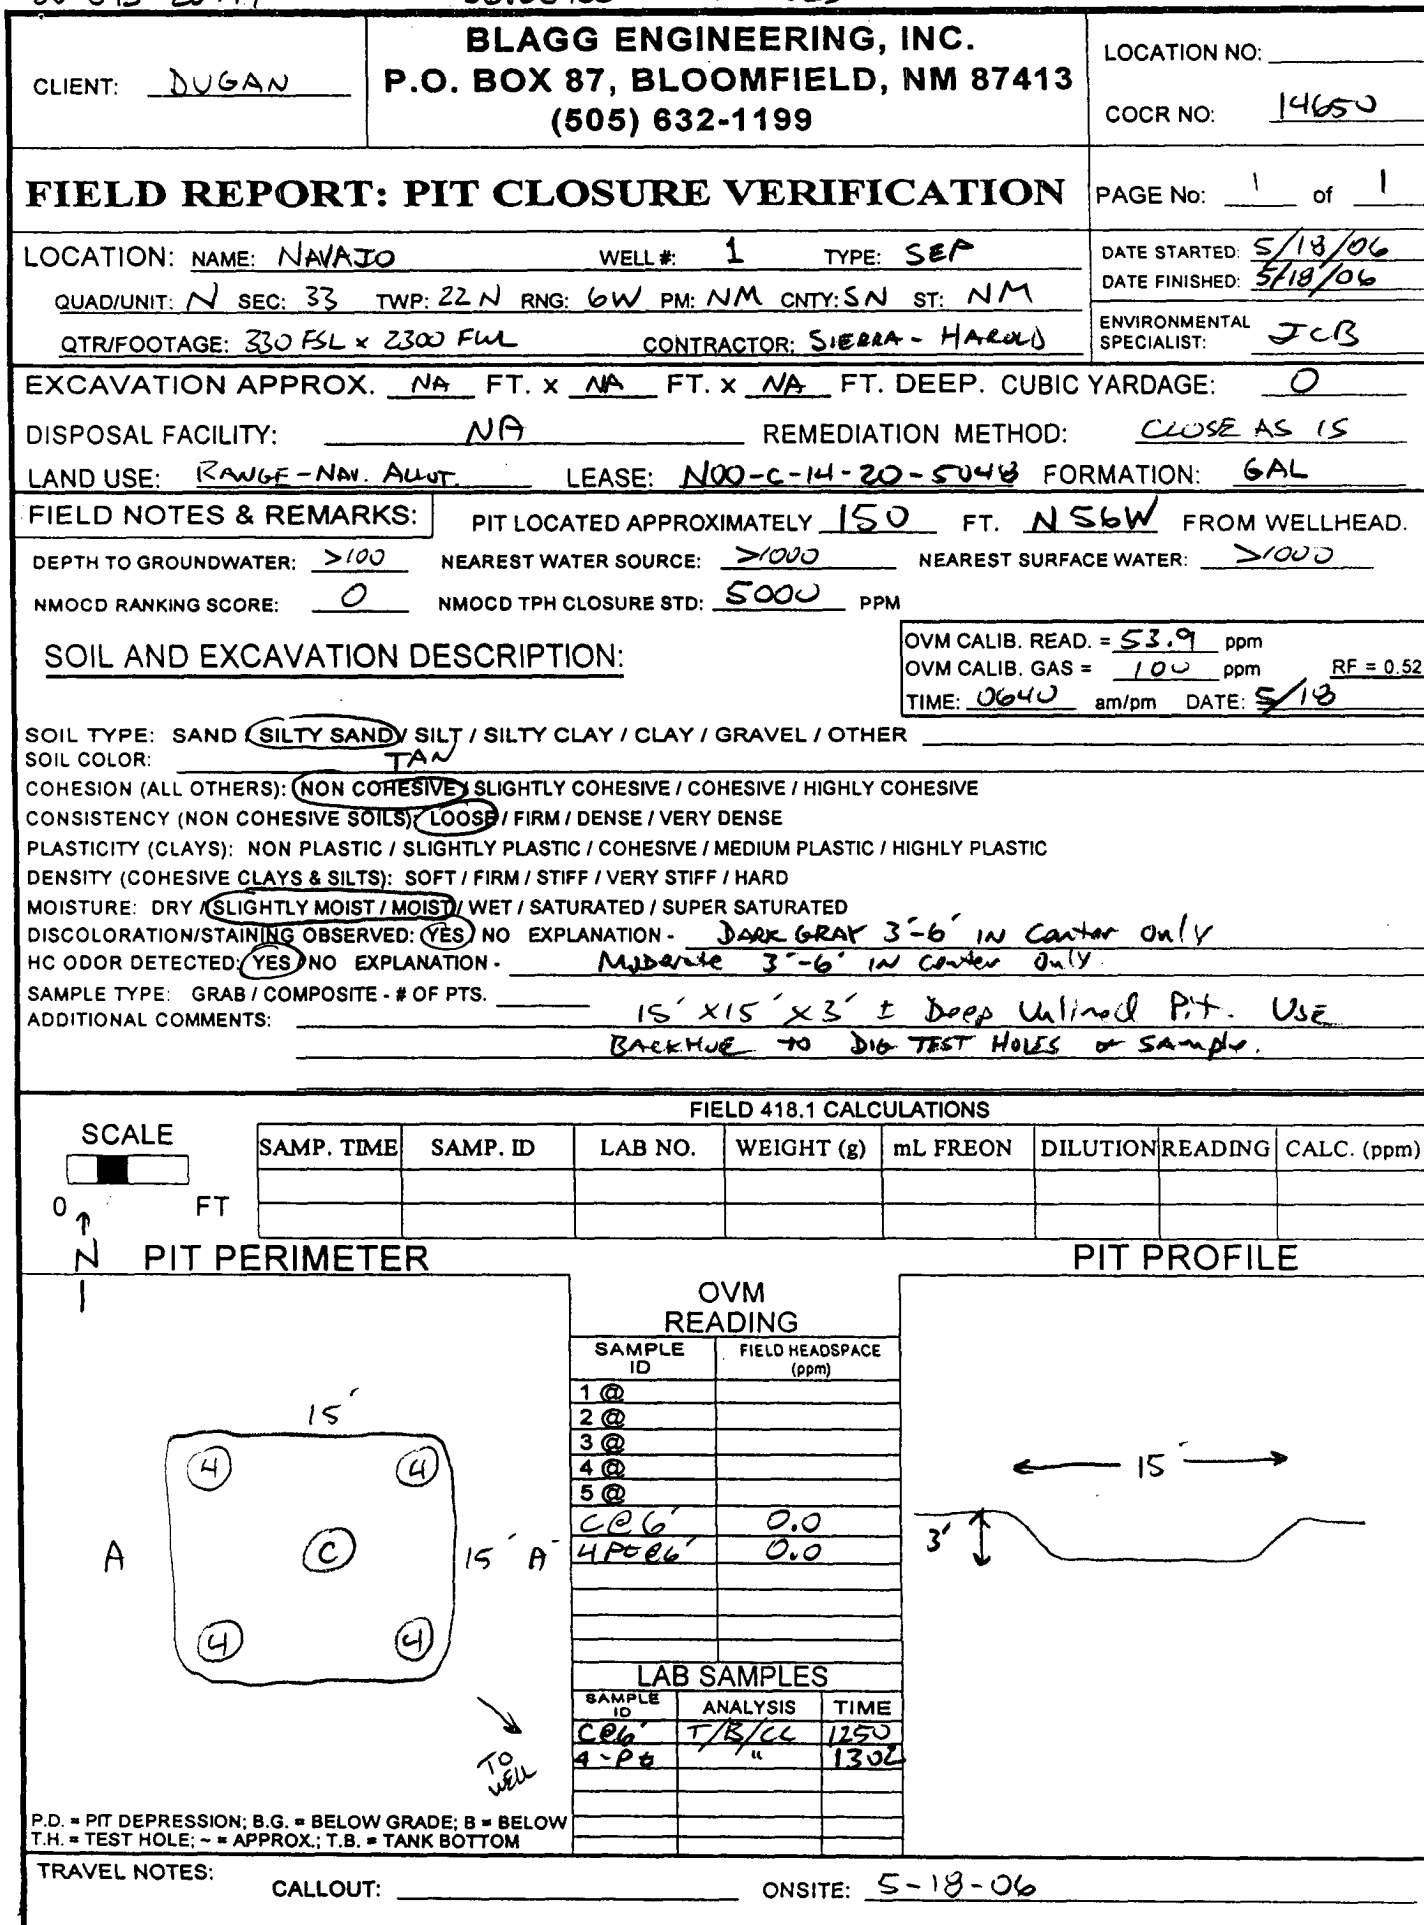 BLAGG ENGINEERING, INC.
P.O. BOX 87, BLOOMFIELD, NM 87413
(505) 632-1199
CLIENT: DUGAN
LOCATION NO:
COCR NO: 14650
FIELD REPORT: PIT CLOSURE VERIFICATION
PAGE No: 1 of 1
LOCATION: NAME: NAVAJO WELL #: 1 TYPE: SEP
QUAD/UNIT: N SEC: 33 TWP: 22N RNG: 6W PM: NM CNTY: SN ST: NM
QTR/FOOTAGE: 330 FSL x 2300 FWL CONTRACTOR: SIERRA - HAROLD
DATE STARTED: 5/18/06
DATE FINISHED: 5/18/06
ENVIRONMENTAL
SPECIALIST: JCB
EXCAVATION APPROX. NA FT. x NA FT. x NA FT. DEEP. CUBIC YARDAGE: 0
DISPOSAL FACILITY: NA REMEDIATION METHOD: CLOSE AS IS
LAND USE: RANGE - NAV. ALLOT. LEASE: N00-C-14-20-5048 FORMATION: GAL
FIELD NOTES & REMARKS: PIT LOCATED APPROXIMATELY 150 FT. N56W FROM WELLHEAD.
DEPTH TO GROUNDWATER: >100 NEAREST WATER SOURCE: >1000 NEAREST SURFACE WATER: >1000
NMOCD RANKING SCORE: 0 NMOCD TPH CLOSURE STD: 5000 PPM
SOIL AND EXCAVATION DESCRIPTION:
OVM CALIB. READ. = 53.9 ppm
OVM CALIB. GAS = 100 ppm RF = 0.52
TIME: 0640 am/pm DATE: 5/18
SOIL TYPE: SAND / SILTY SAND / SILT / SILTY CLAY / CLAY / GRAVEL / OTHER
SOIL COLOR: TAN
COHESION (ALL OTHERS): NON COHESIVE / SLIGHTLY COHESIVE / COHESIVE / HIGHLY COHESIVE
CONSISTENCY (NON COHESIVE SOILS): LOOSE / FIRM / DENSE / VERY DENSE
PLASTICITY (CLAYS): NON PLASTIC / SLIGHTLY PLASTIC / COHESIVE / MEDIUM PLASTIC / HIGHLY PLASTIC
DENSITY (COHESIVE CLAYS & SILTS): SOFT / FIRM / STIFF / VERY STIFF / HARD
MOISTURE: DRY / SLIGHTLY MOIST / MOIST / WET / SATURATED / SUPER SATURATED
DISCOLORATION/STAINING OBSERVED: YES / NO EXPLANATION - DARK GRAY 3'-6' IN Center Only
HC ODOR DETECTED: YES / NO EXPLANATION - Moderate 3'-6' IN Center Only
SAMPLE TYPE: GRAB / COMPOSITE - # OF PTS.
ADDITIONAL COMMENTS: 15' x 15' x 3' ± Deep Unlined Pit. USE
BACKHOE TO DIG TEST HOLES & SAMPLE.
FIELD 418.1 CALCULATIONS
SCALE
0 FT
SAMP. TIME SAMP. ID LAB NO. WEIGHT (g) mL FREON DILUTION READING CALC. (ppm)
N
PIT PERIMETER
PIT PROFILE
OVM
READING
SAMPLE ID FIELD HEADSPACE (ppm)
1 @
2 @
3 @
4 @
5 @
C@6' 0.0
4Pt@6' 0.0
15'
4 4
A C 15' A'
4 4
TO WELL
15'
3'
LAB SAMPLES
SAMPLE ID ANALYSIS TIME
C@6' T/B/CL 1250
4-Pt " 1302
P.D. = PIT DEPRESSION; B.G. = BELOW GRADE; B = BELOW
T.H. = TEST HOLE; ~ = APPROX.; T.B. = TANK BOTTOM
TRAVEL NOTES:
CALLOUT: ONSITE: 5-18-06